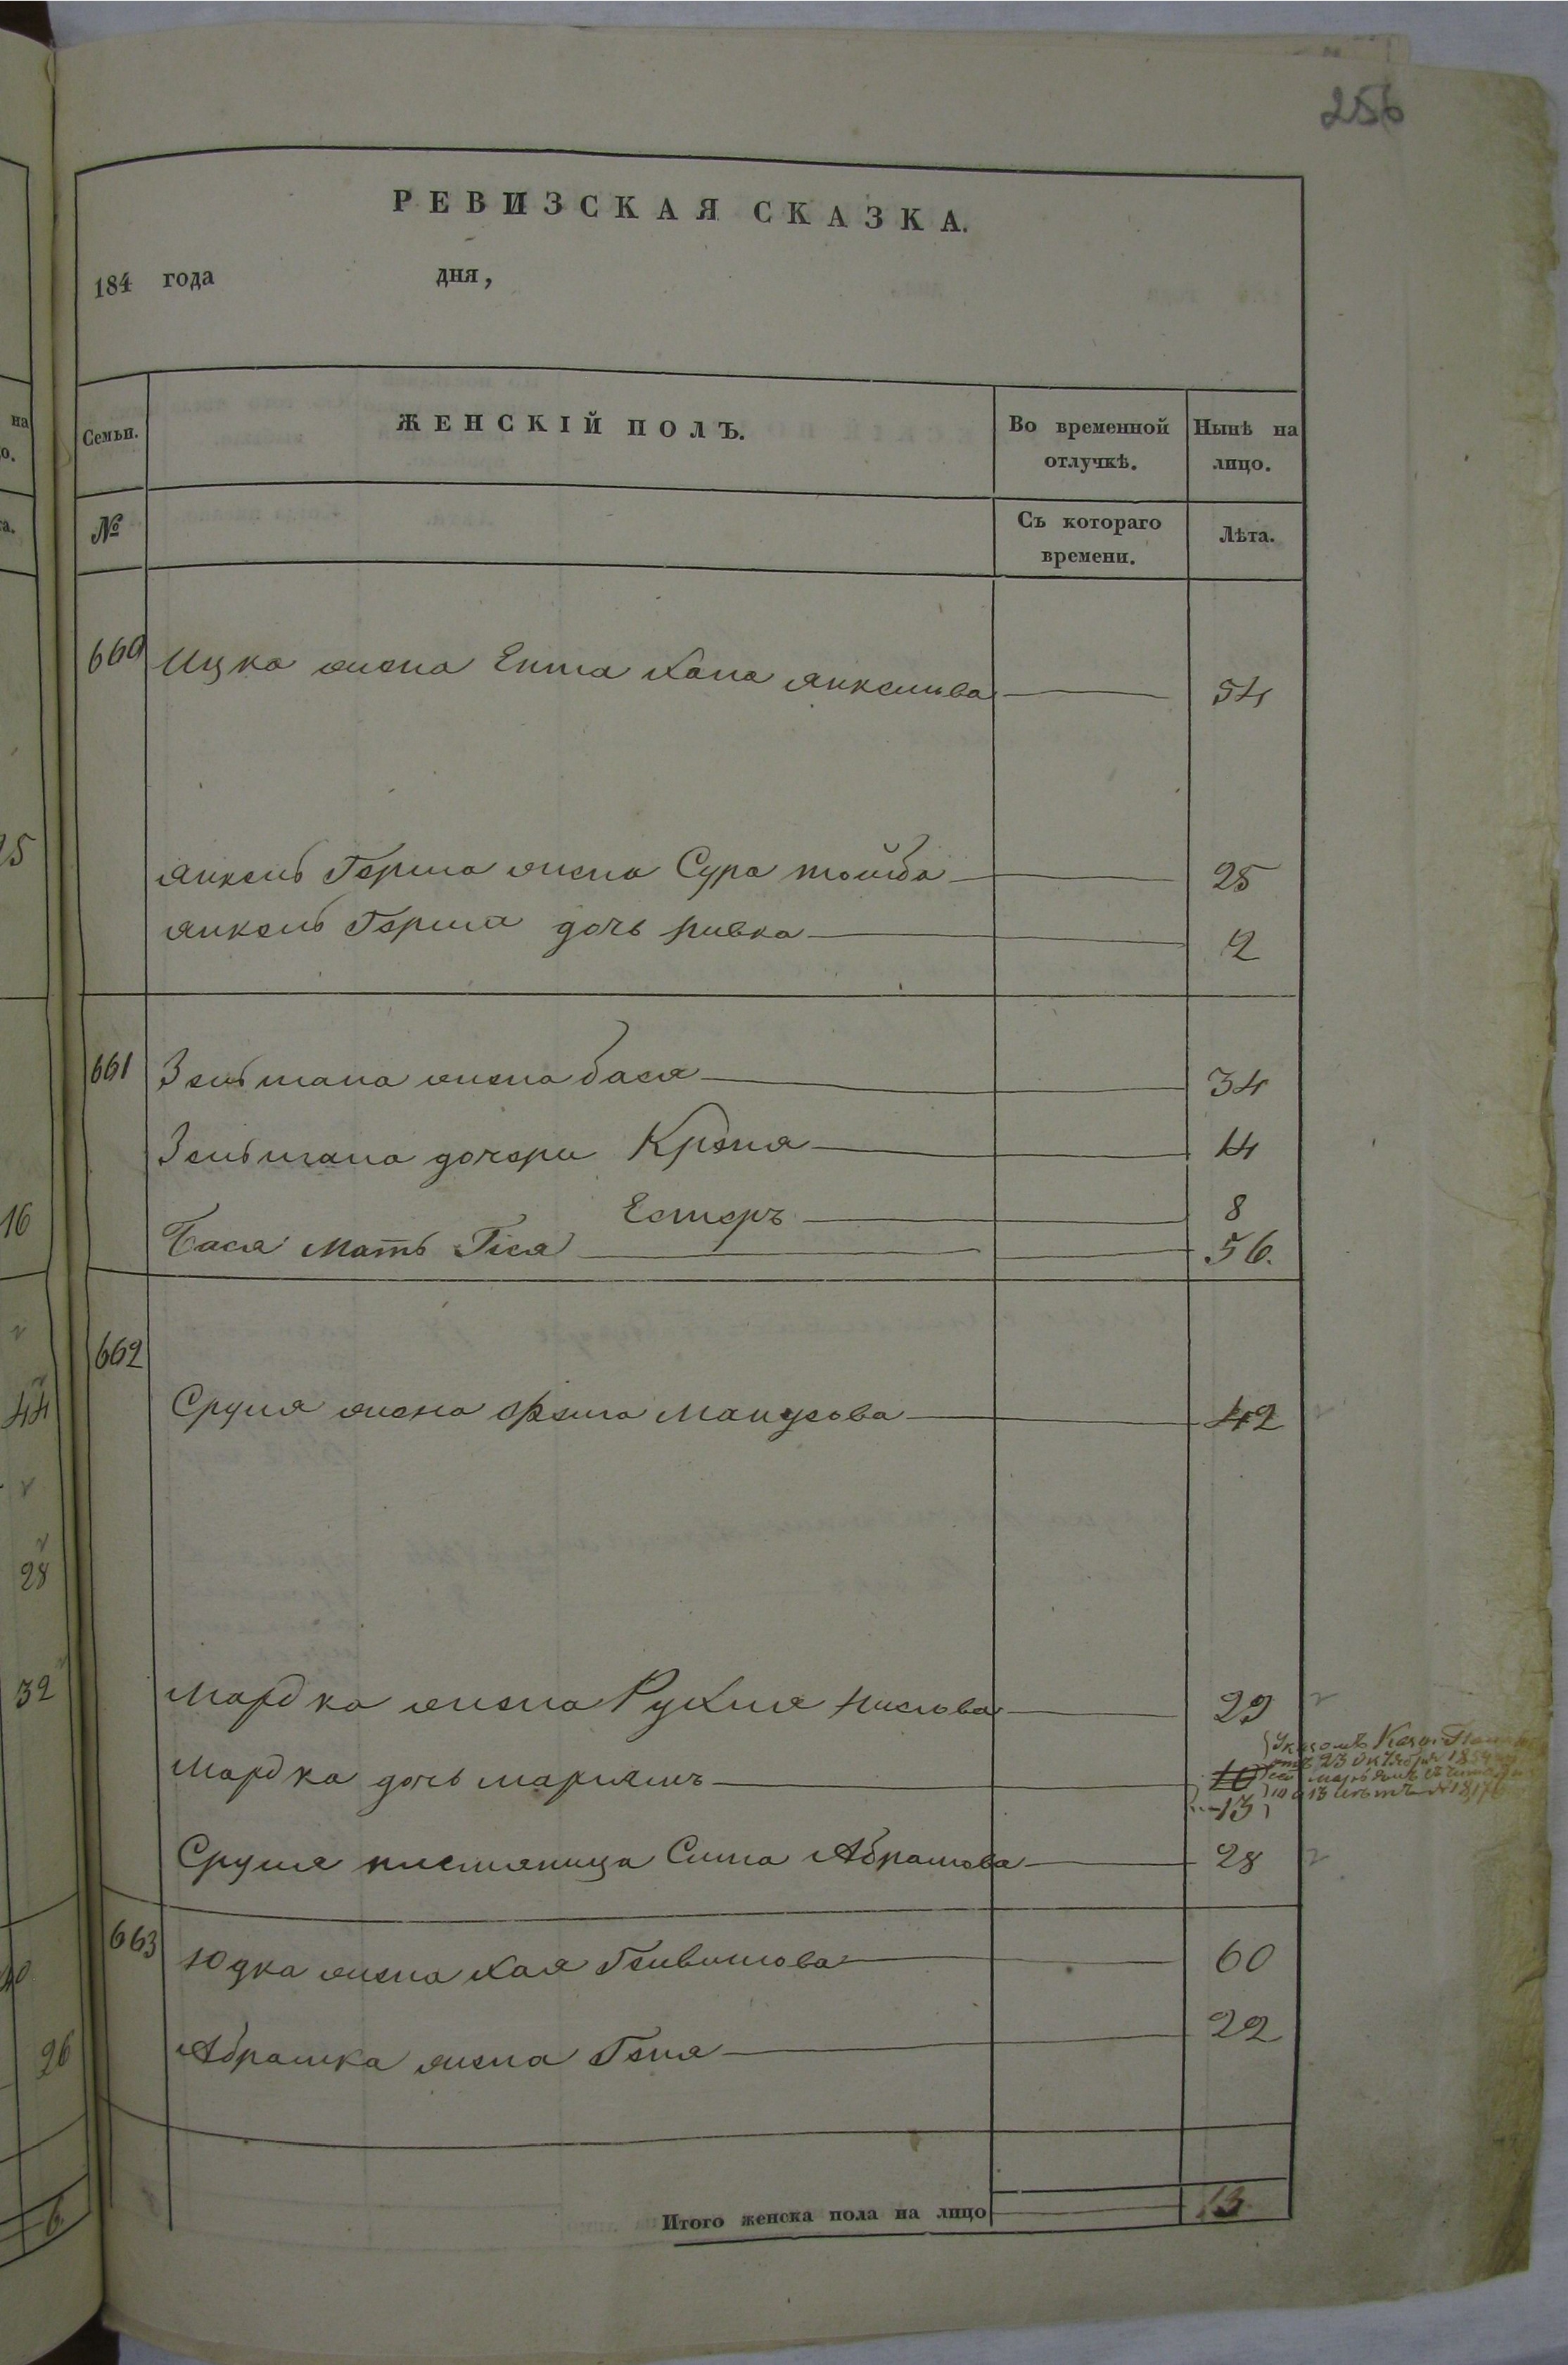 256
РЕВИЗСКАЯ СКАЗКА.
184 года дня,
Семьи. ЖЕНСКІЙ ПОЛЪ. Во временной отлучкѣ. Нынѣ на лицо.
№ Съ котораго времени. Лѣта.
660 Ицка жена Ента Хана Янкелиова 54
Янкель Герша жена Сура тойба 25
Янкель Герша дочь Ривка 2
661 Зельмана жена бася 34
Зельмана дочери Крейня 14
Естеръ 8
Бася Мать Гися 56.
662
Сруля жена Фейга 42
Мордка жена Рухля 29
Мордка дочь Марьямъ 10
13
Указомъ Каз. 
отъ 23 Октября 1854
10 а 13 лѣтъ № 18176
Сруля племяница Сима Абрамова 28
663 Юдка жена Хая Лейвикова 60
Абрамка жена Геня 22
Итого женска пола на лицо 13
на
о.
а.
25
16
44
28
32
40
26
6